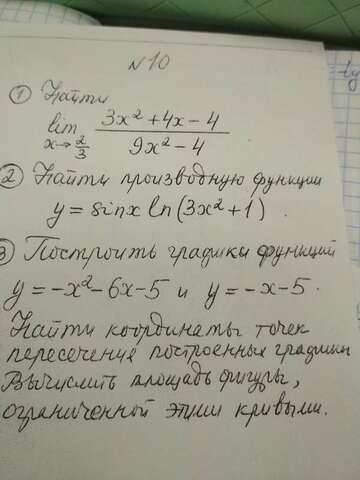 N10
① Найти
lim x→2/3 (3x² + 4x - 4)/(9x² - 4)
② Найти производную функции
y = sinx ln(3x² + 1).
③ Построить графики функций
y = -x² - 6x - 5 и y = -x - 5.
Найти координаты точек
пересечения построенных графики
Вычислить площадь фигуры,
ограниченной этими кривыми.